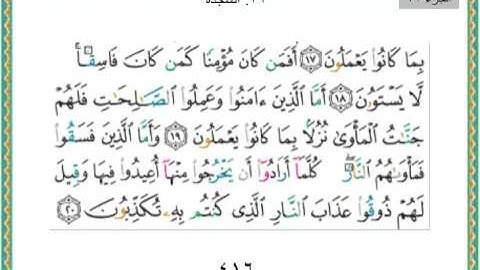 السجدة
بِمَا كَانُوا۟ يَعْمَلُونَ ١٧ أَفَمَن كَانَ مُؤْمِنًا كَمَن كَانَ فَاسِقًاۚ
لَّا يَسْتَوُۥنَ ١٨ أَمَّا ٱلَّذِينَ ءَامَنُوا۟ وَعَمِلُوا۟ ٱلصَّـٰلِحَـٰتِ فَلَهُمْ
جَنَّـٰتُ ٱلْمَأْوَىٰ نُزُلًۢا بِمَا كَانُوا۟ يَعْمَلُونَ ١٩ وَأَمَّا ٱلَّذِينَ فَسَقُوا۟
فَمَأْوَىٰهُمُ ٱلنَّارُۖ كُلَّمَآ أَرَادُوٓا۟ أَن يَخْرُجُوا۟ مِنْهَآ أُعِيدُوا۟ فِيهَا وَقِيلَ
لَهُمْ ذُوقُوا۟ عَذَابَ ٱلنَّارِ ٱلَّذِى كُنتُم بِهِۦ تُكَذِّبُونَ ٢٠
٤١٦